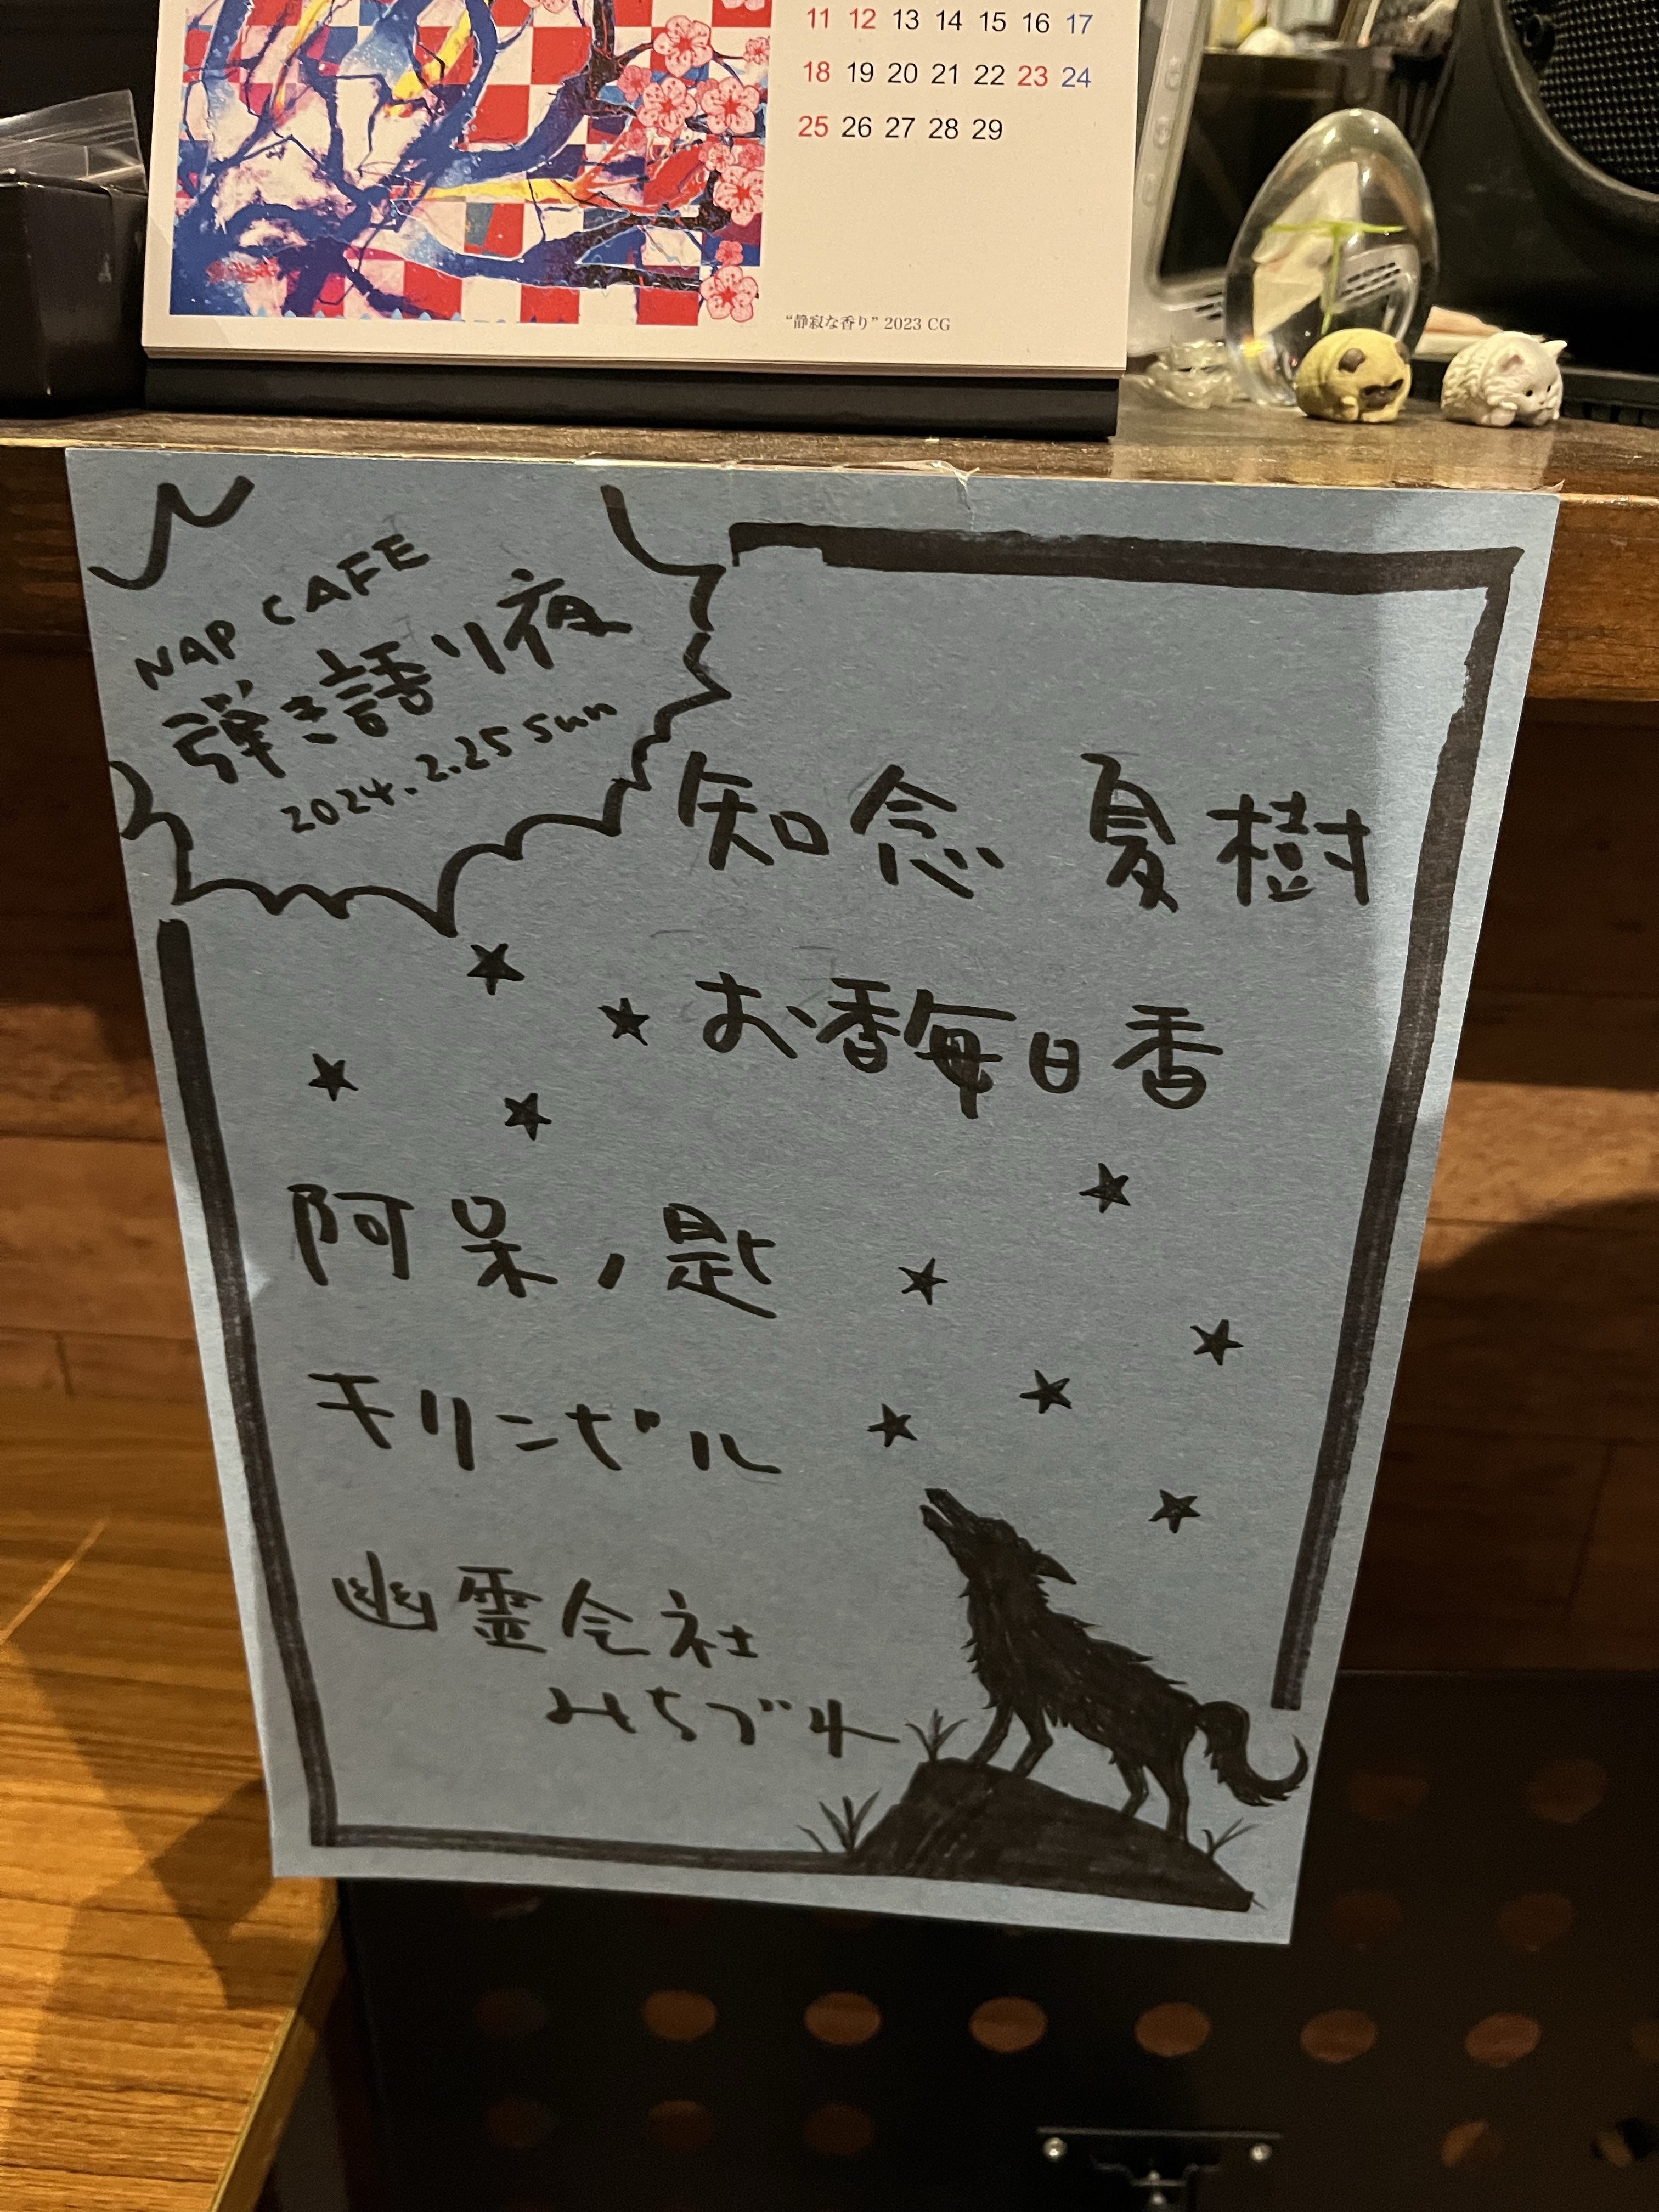 11 12 13 14 15 16 17
18 19 20 21 22 23 24
25 26 27 28 29
“静寂な香り” 2023 CG
NAP CAFE
弾き語り夜
2024.2.25 sun
知念 夏樹
お香毎日香
阿呆ノ匙
キリンザル
幽霊会社
みちづれ